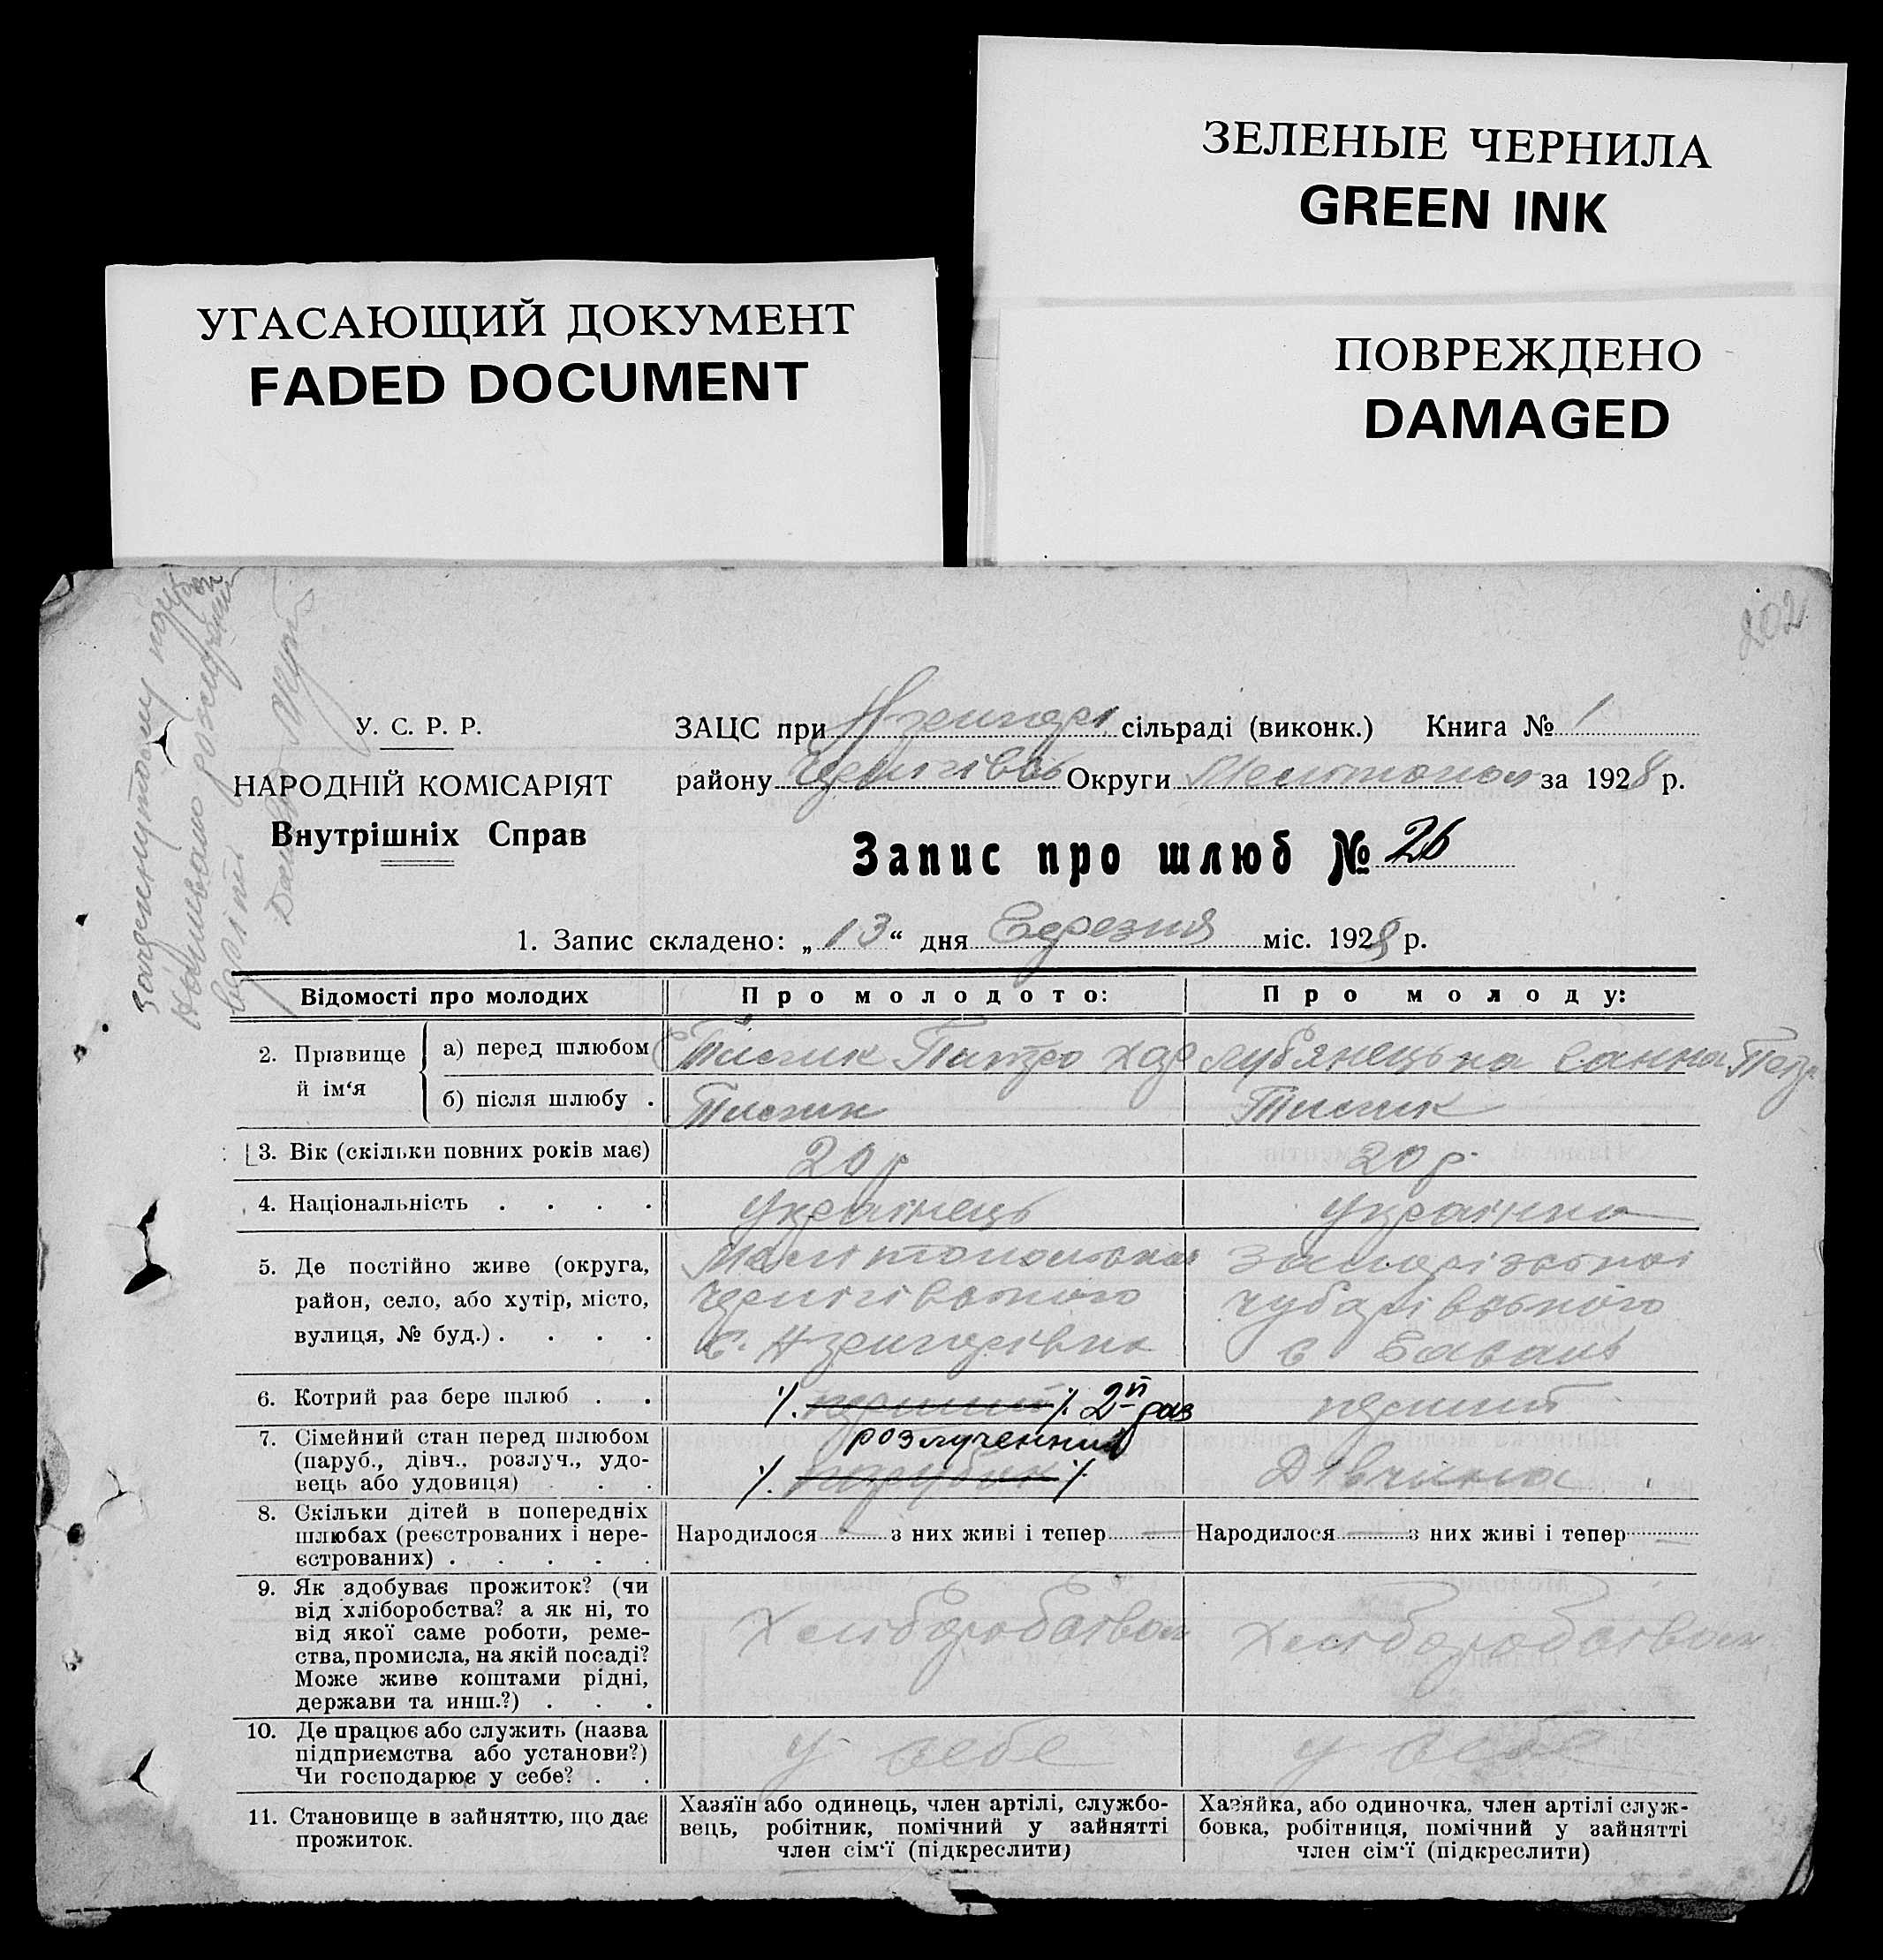 ЗЕЛЕНЫЕ ЧЕРНИЛА
GREEN INK
УГАСАЮЩИЙ ДОКУМЕНТ
FADED DOCUMENT
ПОВРЕЖДЕНО
DAMAGED
202
У. С. Р. Р.
НАРОДНІЙ КОМІСАРІЯТ
Внутрішніх Справ
ЗАЦС при сільраді (виконк.) Книга № 1
району Округи за 1928 р.
Запис про шлюб № 26
1. Запис складено: „13“ дня Березня міс. 1928 р.
Відомості про молодих
Про молодого:
Про молоду:
2. Прізвище й ім‘я
а) перед шлюбом
б) після шлюбу .
3. Вік (скільки повних років має)
20 р
20 р.
4. Національність . . . .
Українець
Українка
5. Де постійно живе (округа,
район, село, або хутір, місто,
вулиця, № буд.) . . . .
Мелітопольська
Чернігівського
Запорізької
Чубарівського
6. Котрий раз бере шлюб . .
перший 2й раз
перший
7. Сімейний стан перед шлюбом
(паруб., дівч., розлуч., удо-
вець або удовиця) . . .
розлученний
парубок
Дівчина
8. Скільки дітей в попередніх
шлюбах (реєстрованих і нере-
єстрованих) . . . . .
Народилося — з них живі і тепер —
Народилося — з них живі і тепер —
9. Як здобуває прожиток? (чи
від хліборобства? а як ні, то
від якої саме роботи, реме-
ства, промисла, на якій посаді?
Може живе коштами рідні,
держави та инш.?) . . .
Хліборобством
Хліборобством
10. Де працює або служить (назва
підприємства або установи?)
Чи господарює у себе? . .
у себе
у себе
11. Становище в зайняттю, що дає
прожиток.
Хазяїн або одинець, член артілі, службо-
вець, робітник, помічний у зайнятті
член сім‘ї (підкреслити)
Хазяйка, або одиночка, член артілі служ-
бовка, робітниця, помічний у зайнятті
член сім‘ї (підкреслити)